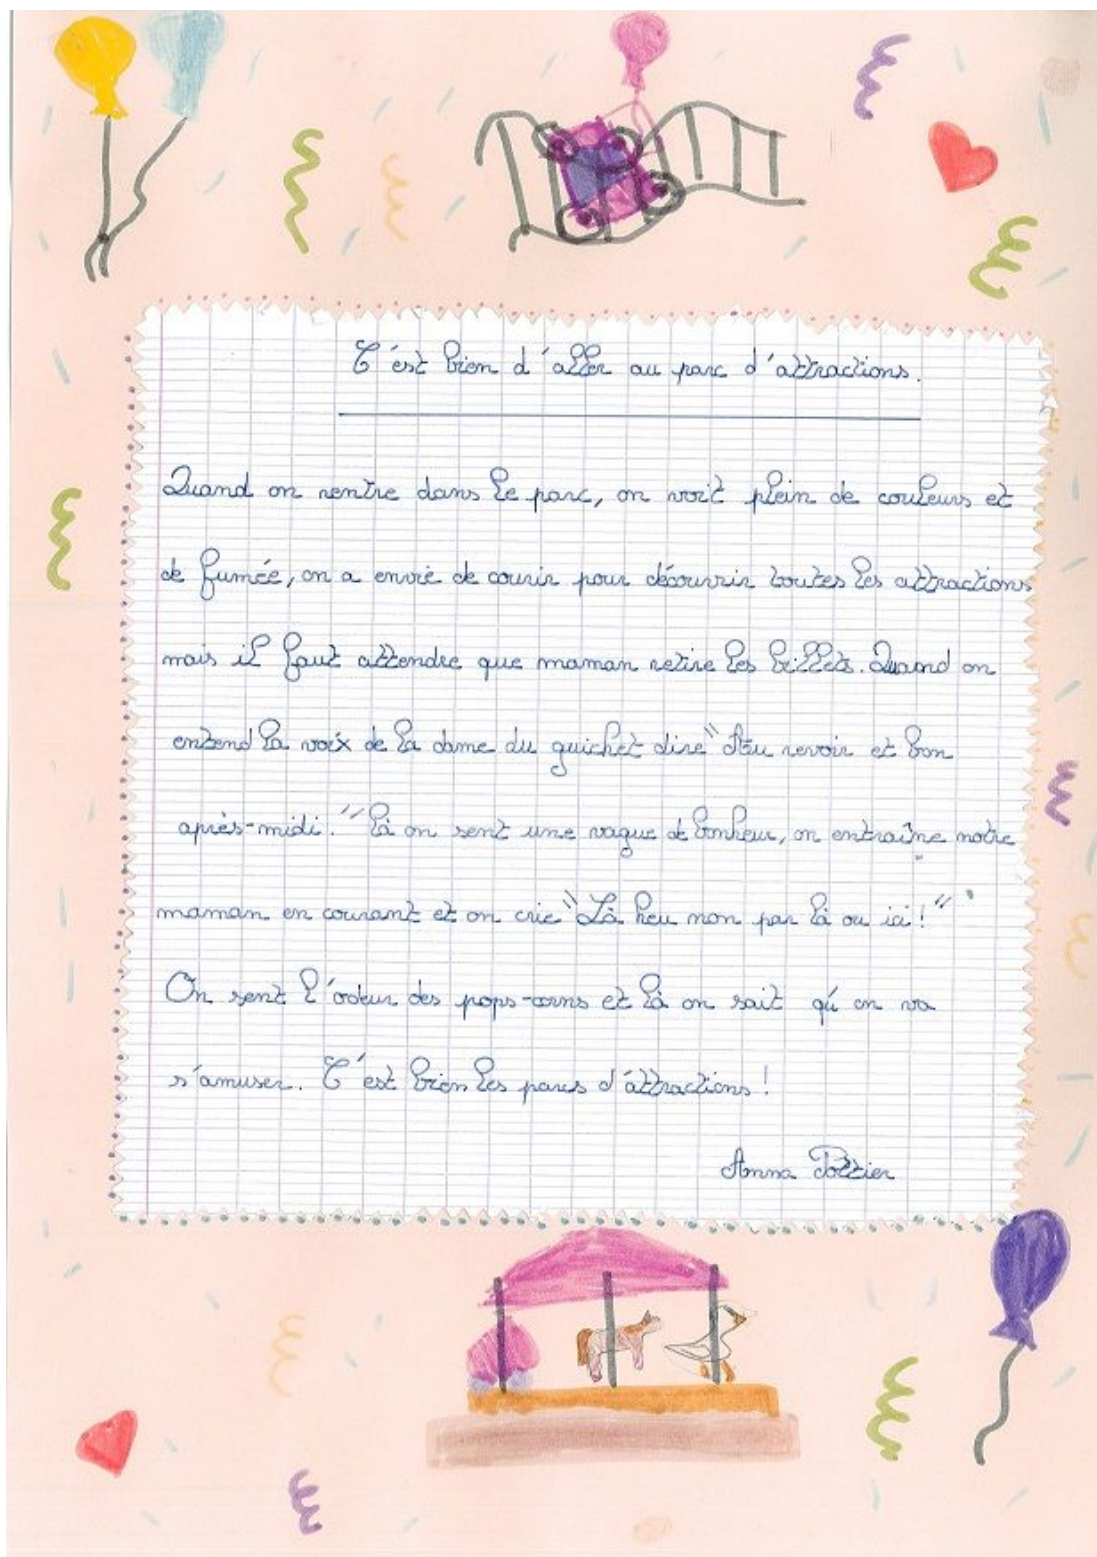 C'est bien d'aller au parc d'attractions.
Quand on rentre dans le parc, on voit plein de couleurs et
de fumée, on a envie de courir pour découvrir toutes les attractions
mais il faut attendre que maman retire les billets. Quand on
entend la voix de la dame du guichet dire "Au revoir et bon
après-midi." là on sent une vague de bonheur, on entraîne notre
maman en courant et on crie "Là heu non par là ou ici!"
On sent l'odeur des pops-corns et là on sait qu'on va
s'amuser. C'est bien les parcs d'attractions!
Anna Pottier